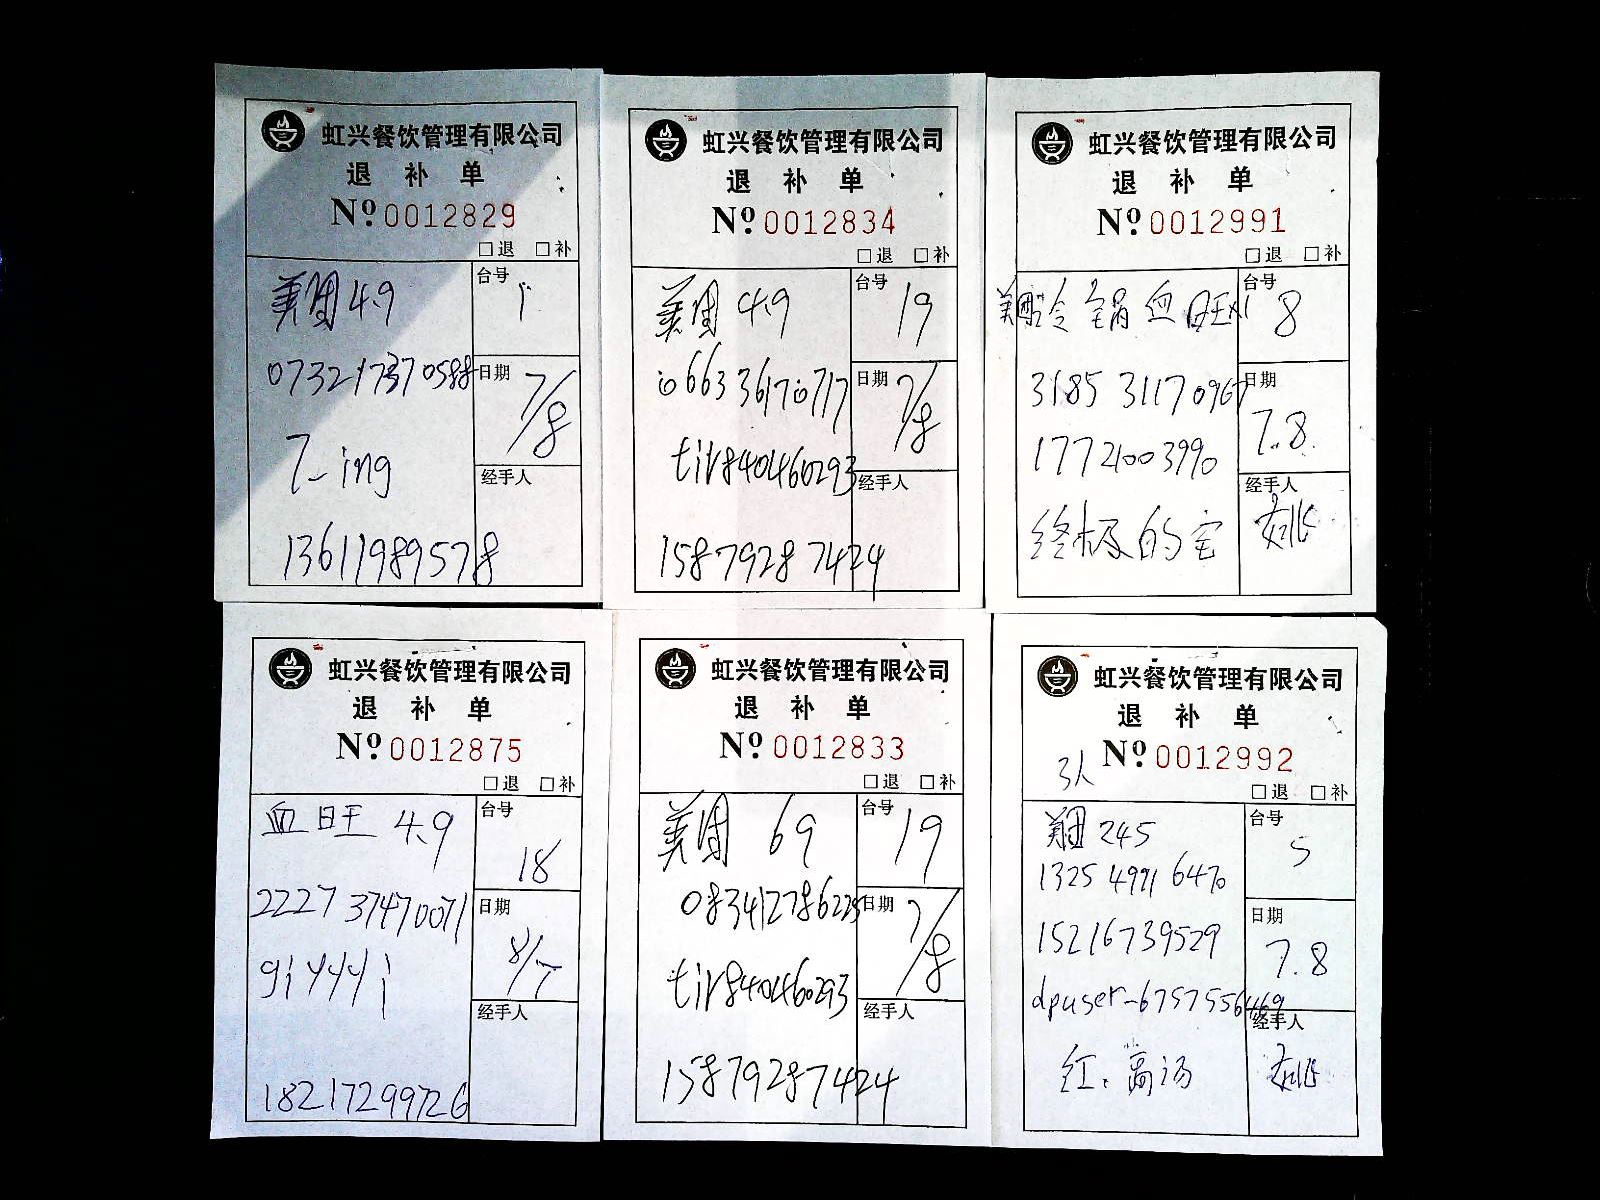 虹兴餐饮管理有限公司
退 补 单
Nº 0012829
□退 □补
美团 4.9
台号 1
073217370588
日期 7/8
7_ing
经手人
13611989578
虹兴餐饮管理有限公司
退 补 单
Nº 0012834
□退 □补
美团 4.9
台号 19
0663 36170717
日期 7/8
tir840460293
经手人
15879287424
虹兴餐饮管理有限公司
退 补 单
Nº 0012991
□退 □补
美团 冷锅血旺x1
台号 8
3185 3117 0967
日期 7.8
17721003990
经手人
终极的宅
虹兴餐饮管理有限公司
退 补 单
Nº 0012875
□退 □补
血旺 4.9
台号 18
2227 37470071
日期 8/7
giyyyi
经手人
18217299726
虹兴餐饮管理有限公司
退 补 单
Nº 0012833
□退 □补
美团 69
台号 19
083412786225
日期 7/8
tir840460293
经手人
15879287424
虹兴餐饮管理有限公司
退 补 单
Nº 0012992
3人
□退 □补
美团 245
台号 5
1325 4991 6470
15216739529
日期 7.8
dpuser-6757556469
经手人
红、高汤